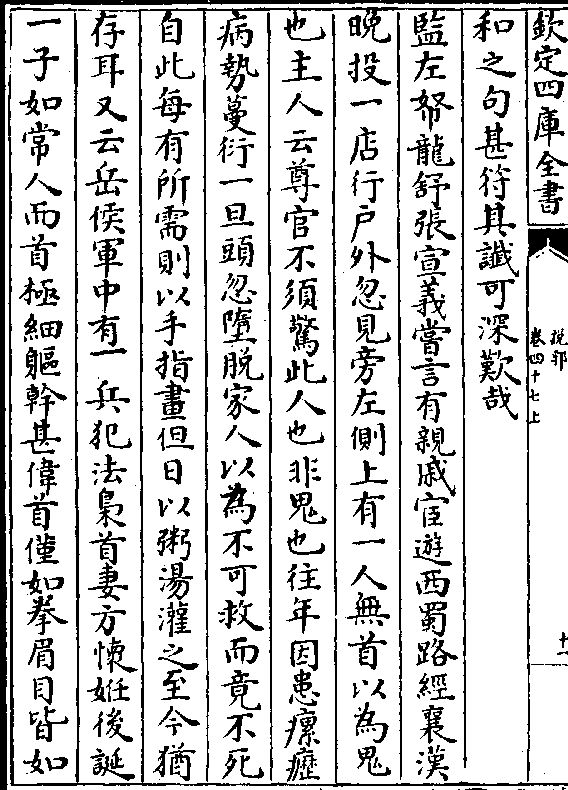 欽定四庫全書
說郛
卷四十七上
十一
和之句甚符其讖可深歎哉
監左帑龍舒張宣義嘗言有親戚宦遊西蜀路經襄漢
晚投一店行户外忽見旁左側上有一人無首以為鬼
也主人云尊官不須驚此人也非鬼也往年因患瘰癧
病勢蔓衍一旦頭忽墮脫家人以為不可救而竟不死
自此每有所需則以手指畫但日以粥湯灌之至今猶
存耳又云岳侯軍中有一兵犯法梟首妻方懷姙後誕
一子如常人而首極細軀幹甚偉首僅如拳眉目皆如